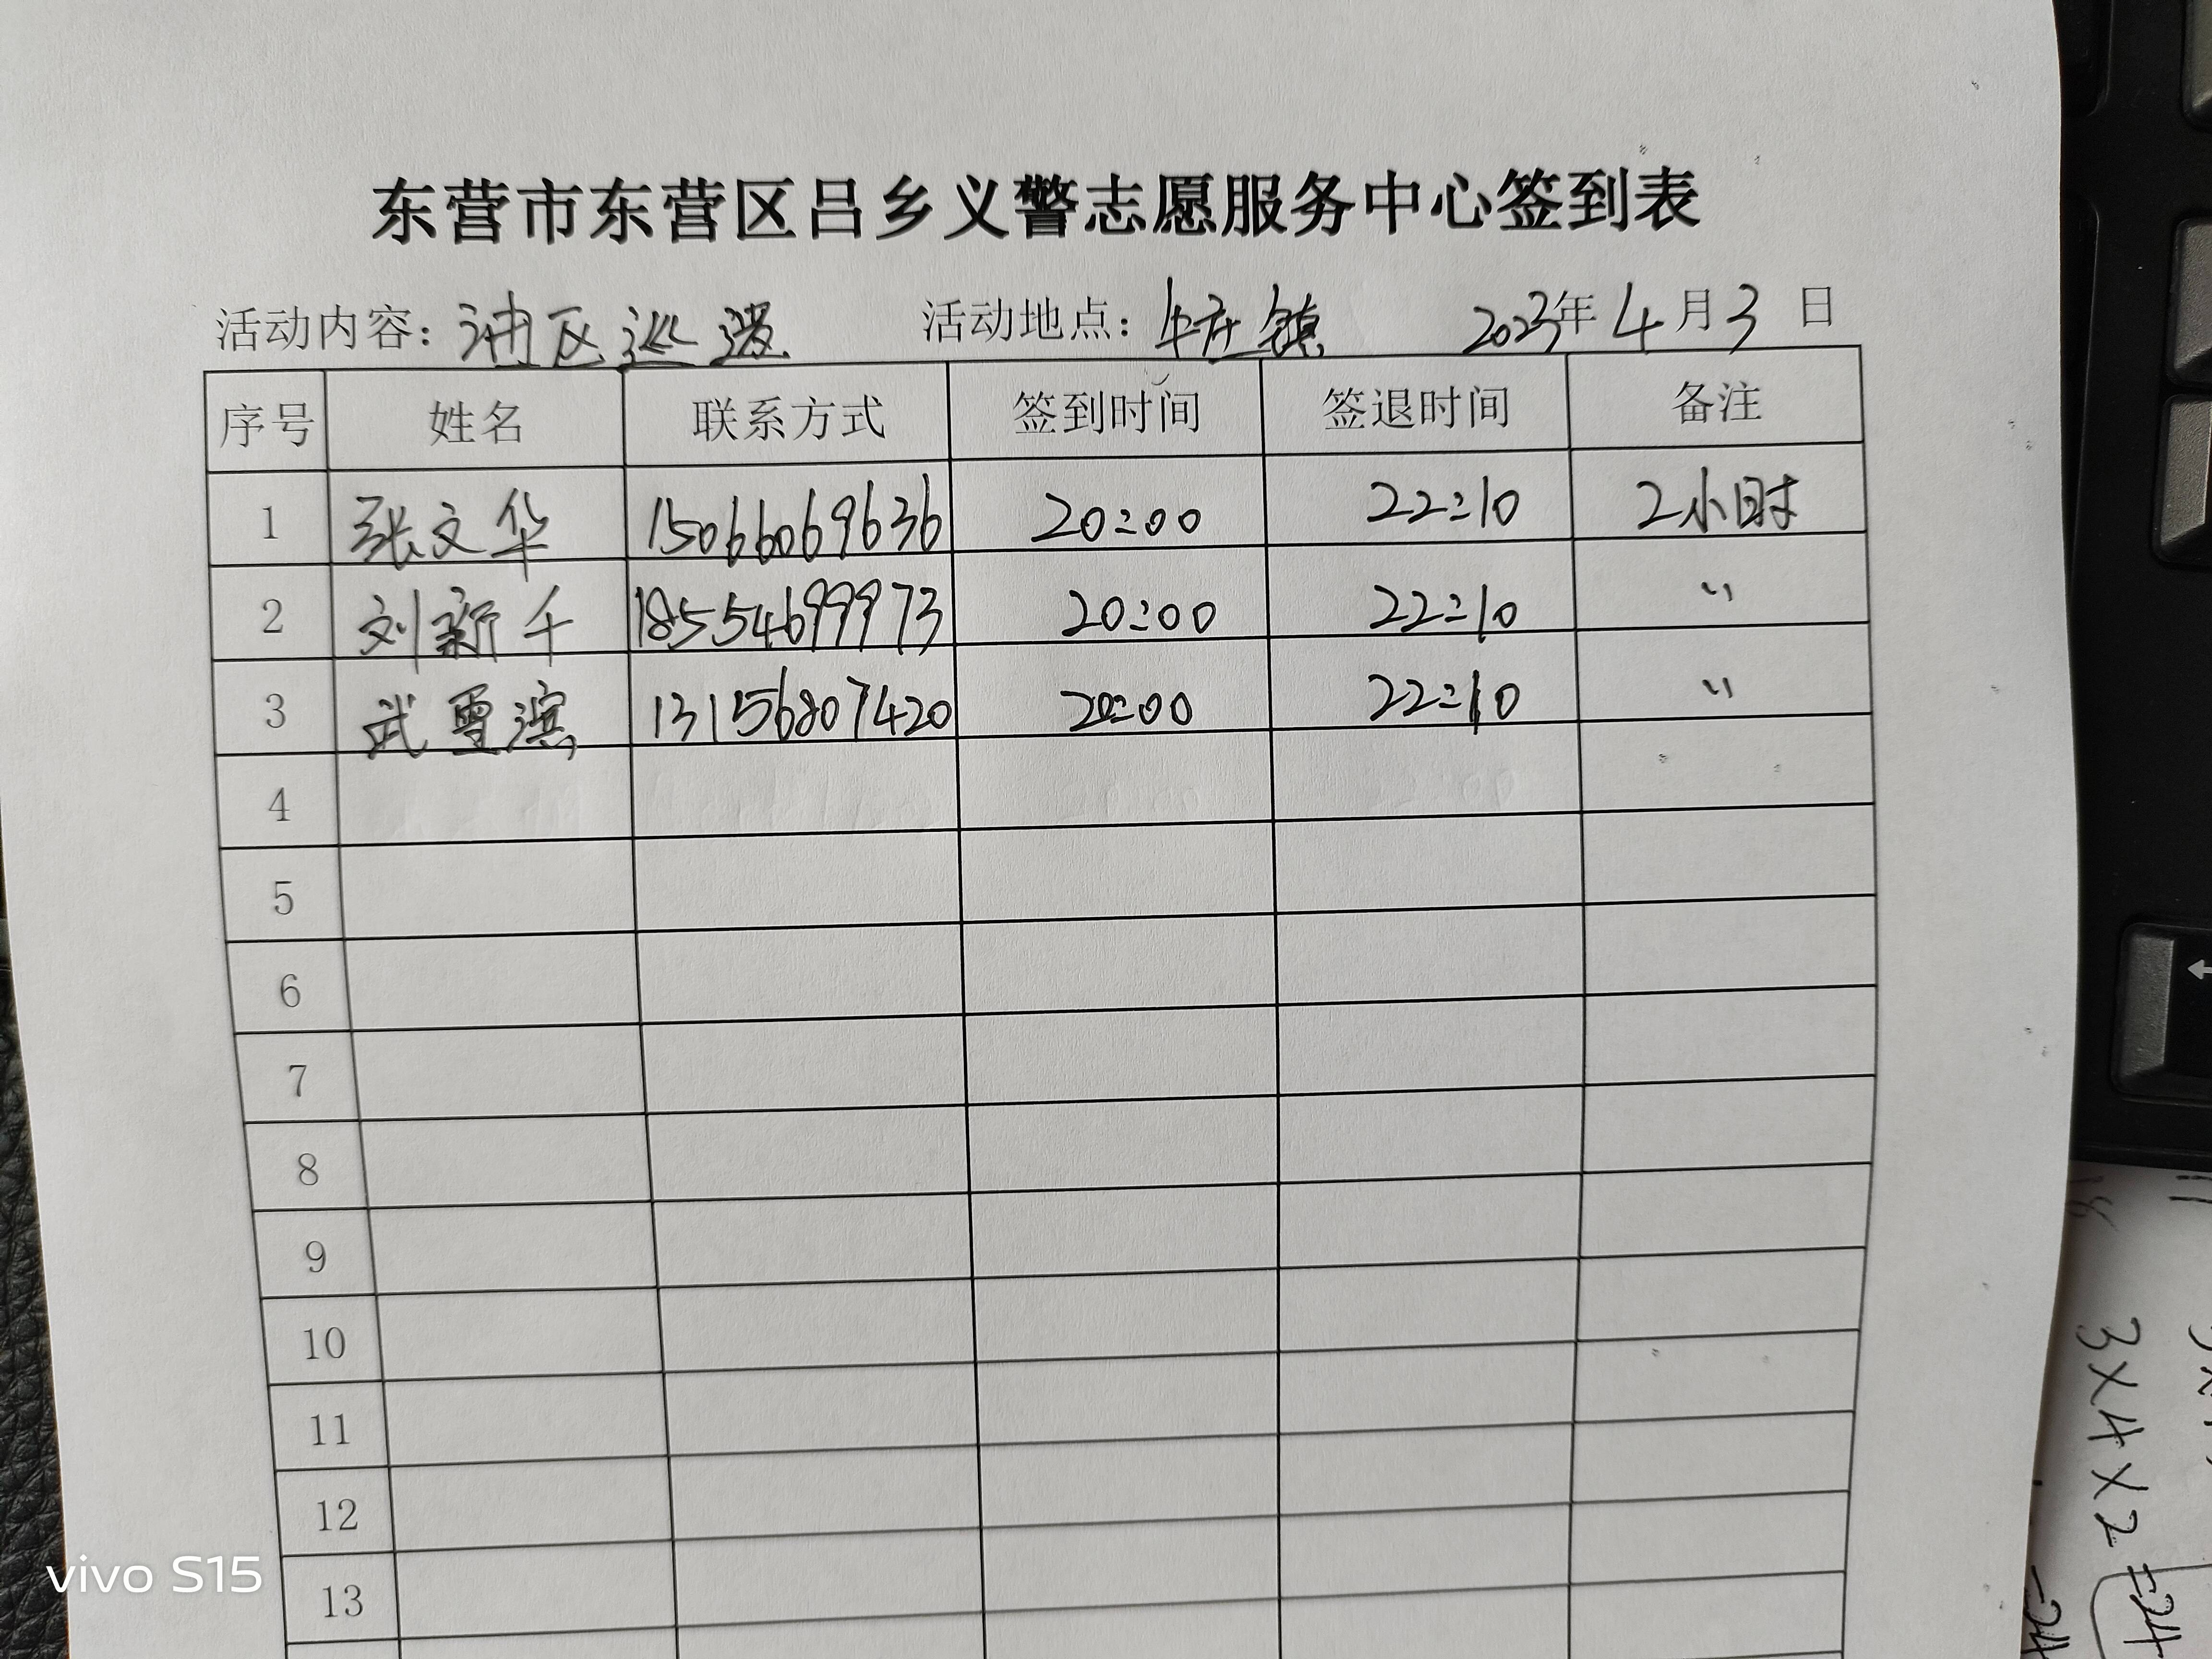 东营市东营区吕乡义警志愿服务中心签到表
活动内容：油区巡逻 活动地点：牛庄镇 2023年4月3日
序号 姓名 联系方式 签到时间 签退时间 备注
1 张文华 15066069636 20:00 22:10 2小时
2 刘新千 18554699973 20:00 22:10 〃
3 武雪滨 13156807420 20:00 22:10 〃
4
5
6
7
8
9
10
11
12
13
vivo S15
3×4×2=24
=24